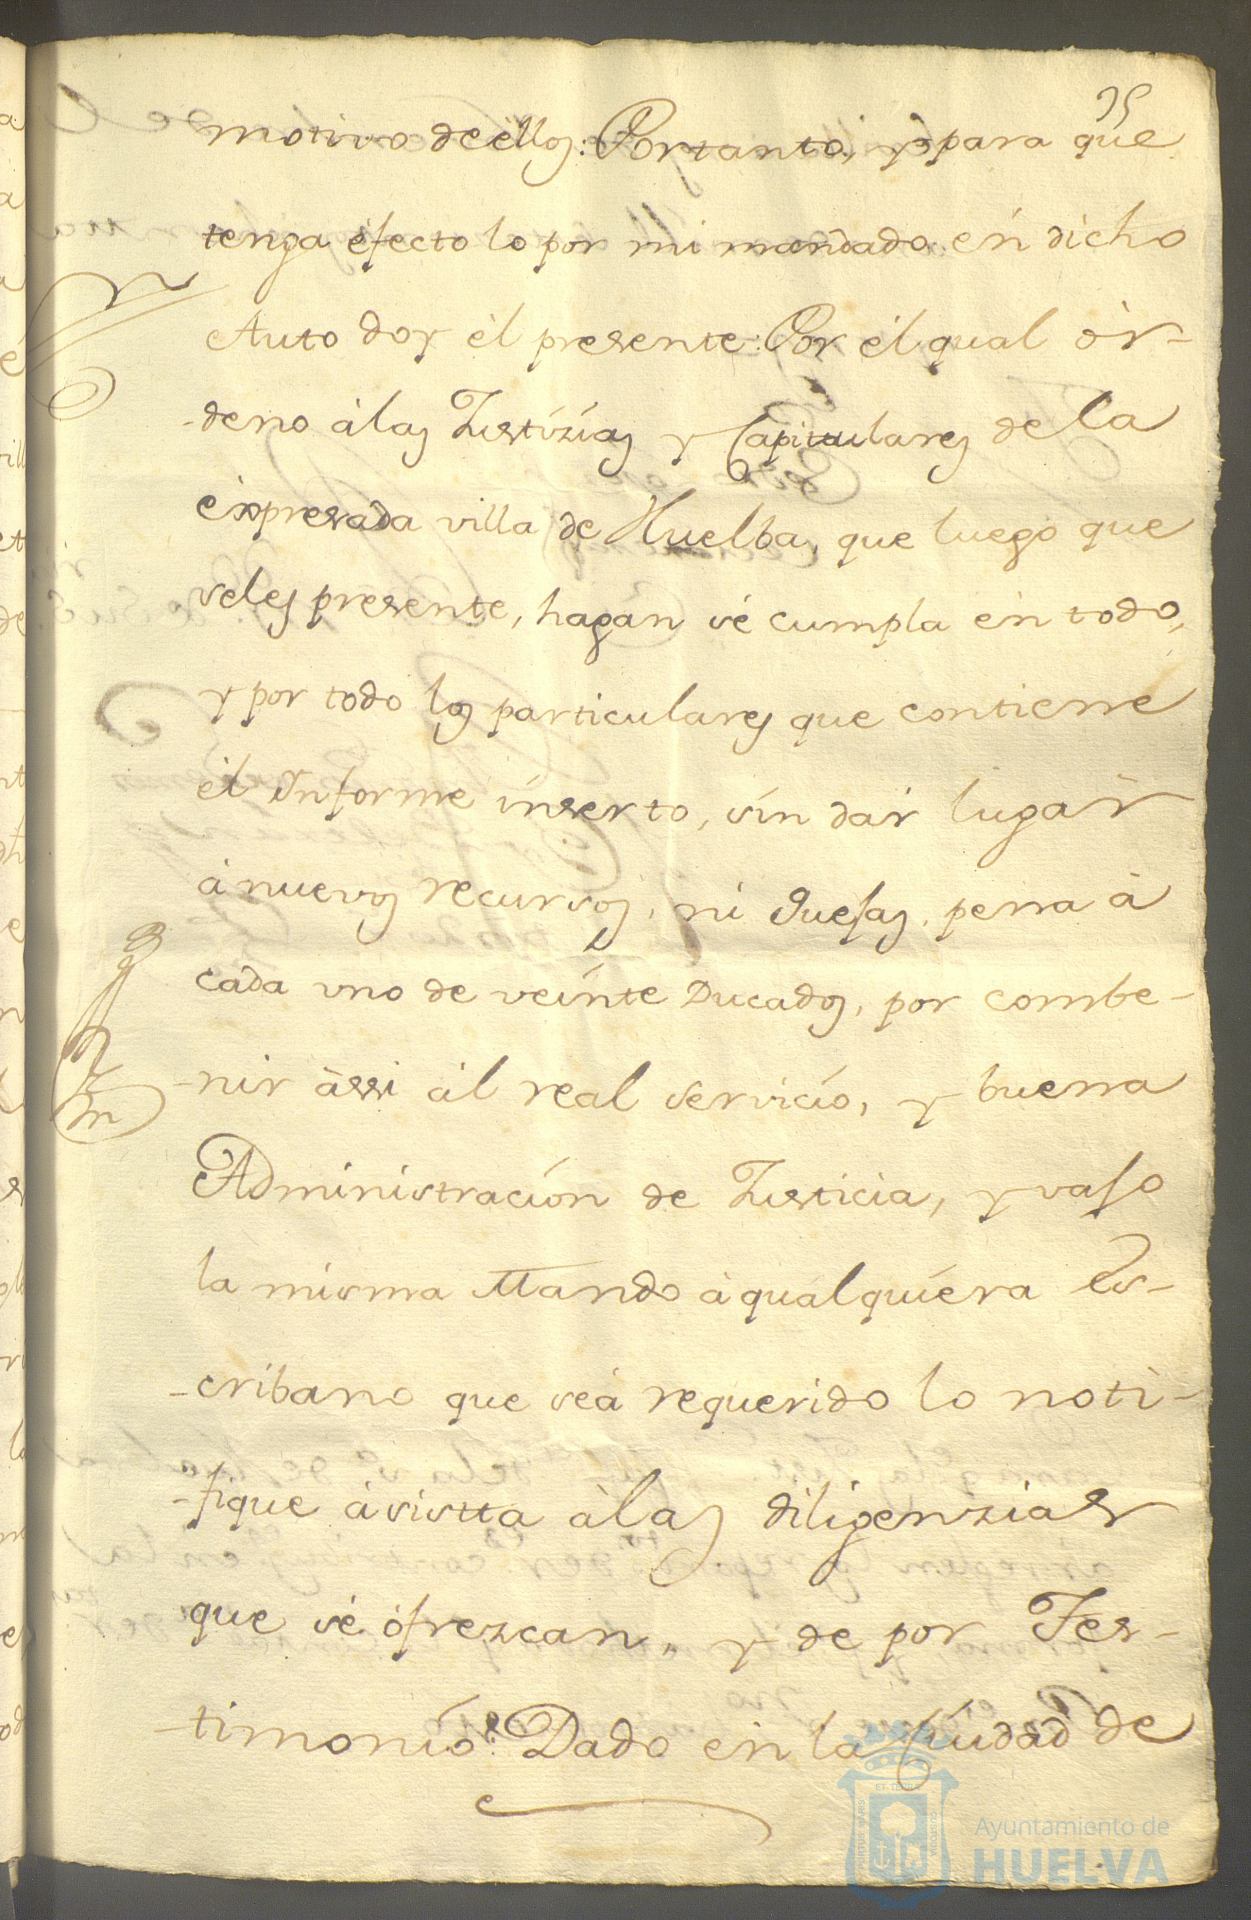 35
motivo de èllos: Portanto, y para que
tenga èfecto lo por mi mandado èn dicho
Auto doy èl presente: Por èl qual òr-
-deno à las Justizias y Capitulares de la
èxpresada villa de Huelba, que luego que
seles presente, hagan sè cumpla èn todo,
y por todo los particulares que contiene
èl Informe inserto, sin dar lugar
à nuevos recursos, ni Quejas, pena à
cada uno de veinte Ducados, por combe-
-nir àssi àl real servicio, y buena
Administracion de Justicia, y vajo
la misma Mando à qualquiera Es-
-cribano que seà requerido lo noti-
-fique àsistta à las diligenzias
que sè òfrezcan, y de por Tes-
-timonio: Dado èn la Ciudad de
Ayuntamiento de
HUELVA